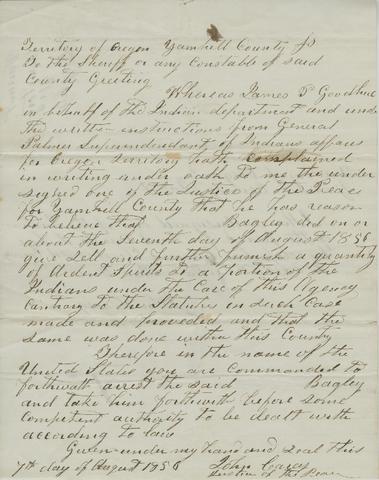 Territory of Oregon Yamhill County ss
To the Sheriff or any Constable of said
County Greeting
Whereas James P Goodhue
in behalf of the Indian department and under
the written instructions from General
Palmer Superintendant of Indians affairs
for Oregon Territory hath Complained
in writing under oath to me the under
signed one of the Justice of the Peace
for Yamhill County that he has reason
to believe that Bagley did on or
about the Seventh day of August 1856
give Sell and further furnish a quantity
of Ardent Spirits to a portion of the
Indians under the Care of this Agency
Contrary to the Statutes in Such Case
made and provided and that the
same was done within this County
Therefore in the name of the
United States you are commanded to
forthwith arrest the said Bagley
and take him forthwith before some
competent authority to be dealt with
according to law
Given under my hand and Seal this
7th day of August 1856 John
Justice of the Peace